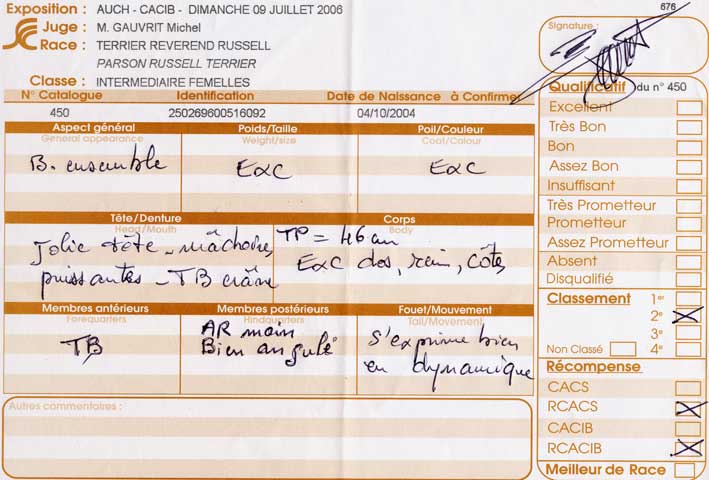 Exposition : AUCH - CACIB - DIMANCHE 09 JUILLET 2006
676
Juge : M. GAUVRIT Michel
Signature :
Race : TERRIER REVEREND RUSSELL
PARSON RUSSELL TERRIER
Classe : INTERMEDIAIRE FEMELLES
N° Catalogue Identification Date de Naissance à Confirmer
450 250269600516092 04/10/2004
Aspect général Poids/Taille Poil/Couleur
General appearance Weight/size Coat/Colour
B. ensemble Exc Exc
Tête/Denture Corps
Head/Mouth Body
Jolie tête - mâchoires
puissantes - TB crâne
TP = 46 cm
Exc dos, rein, côtes
Membres antérieurs Membres postérieurs Fouet/Mouvement
Forequarters Hindquarters Tail/Movement
TB
AR main
Bien angulé
s'exprime bien
en dynamique
Autres commentaires :
Qualificatif du n° 450
Excellent
Très Bon
Bon
Assez Bon
Insuffisant
Très Prometteur
Prometteur
Assez Prometteur
Absent
Disqualifié
Classement 1er
2e X
3e
Non Classé 4e
Récompense
CACS
RCACS X
CACIB
RCACIB X
Meilleur de Race